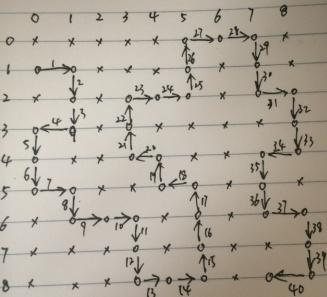 0 1 2 3 4 5 6 7 8
27 28
0 × × × × × ×
26 29
1 1 × × × × ×
2 25 30
2 × × 23 24 × 31
3 22 32
3 4 × × × × ×
5 21 33
4 × × 20 × × 34
6 19 35
5 7 × × 18 × ×
8 17 36
6 × 9 10 × × 37
11 16 38
7 × × × × × × ×
12 15 39
8 × × × 13 14 × 40